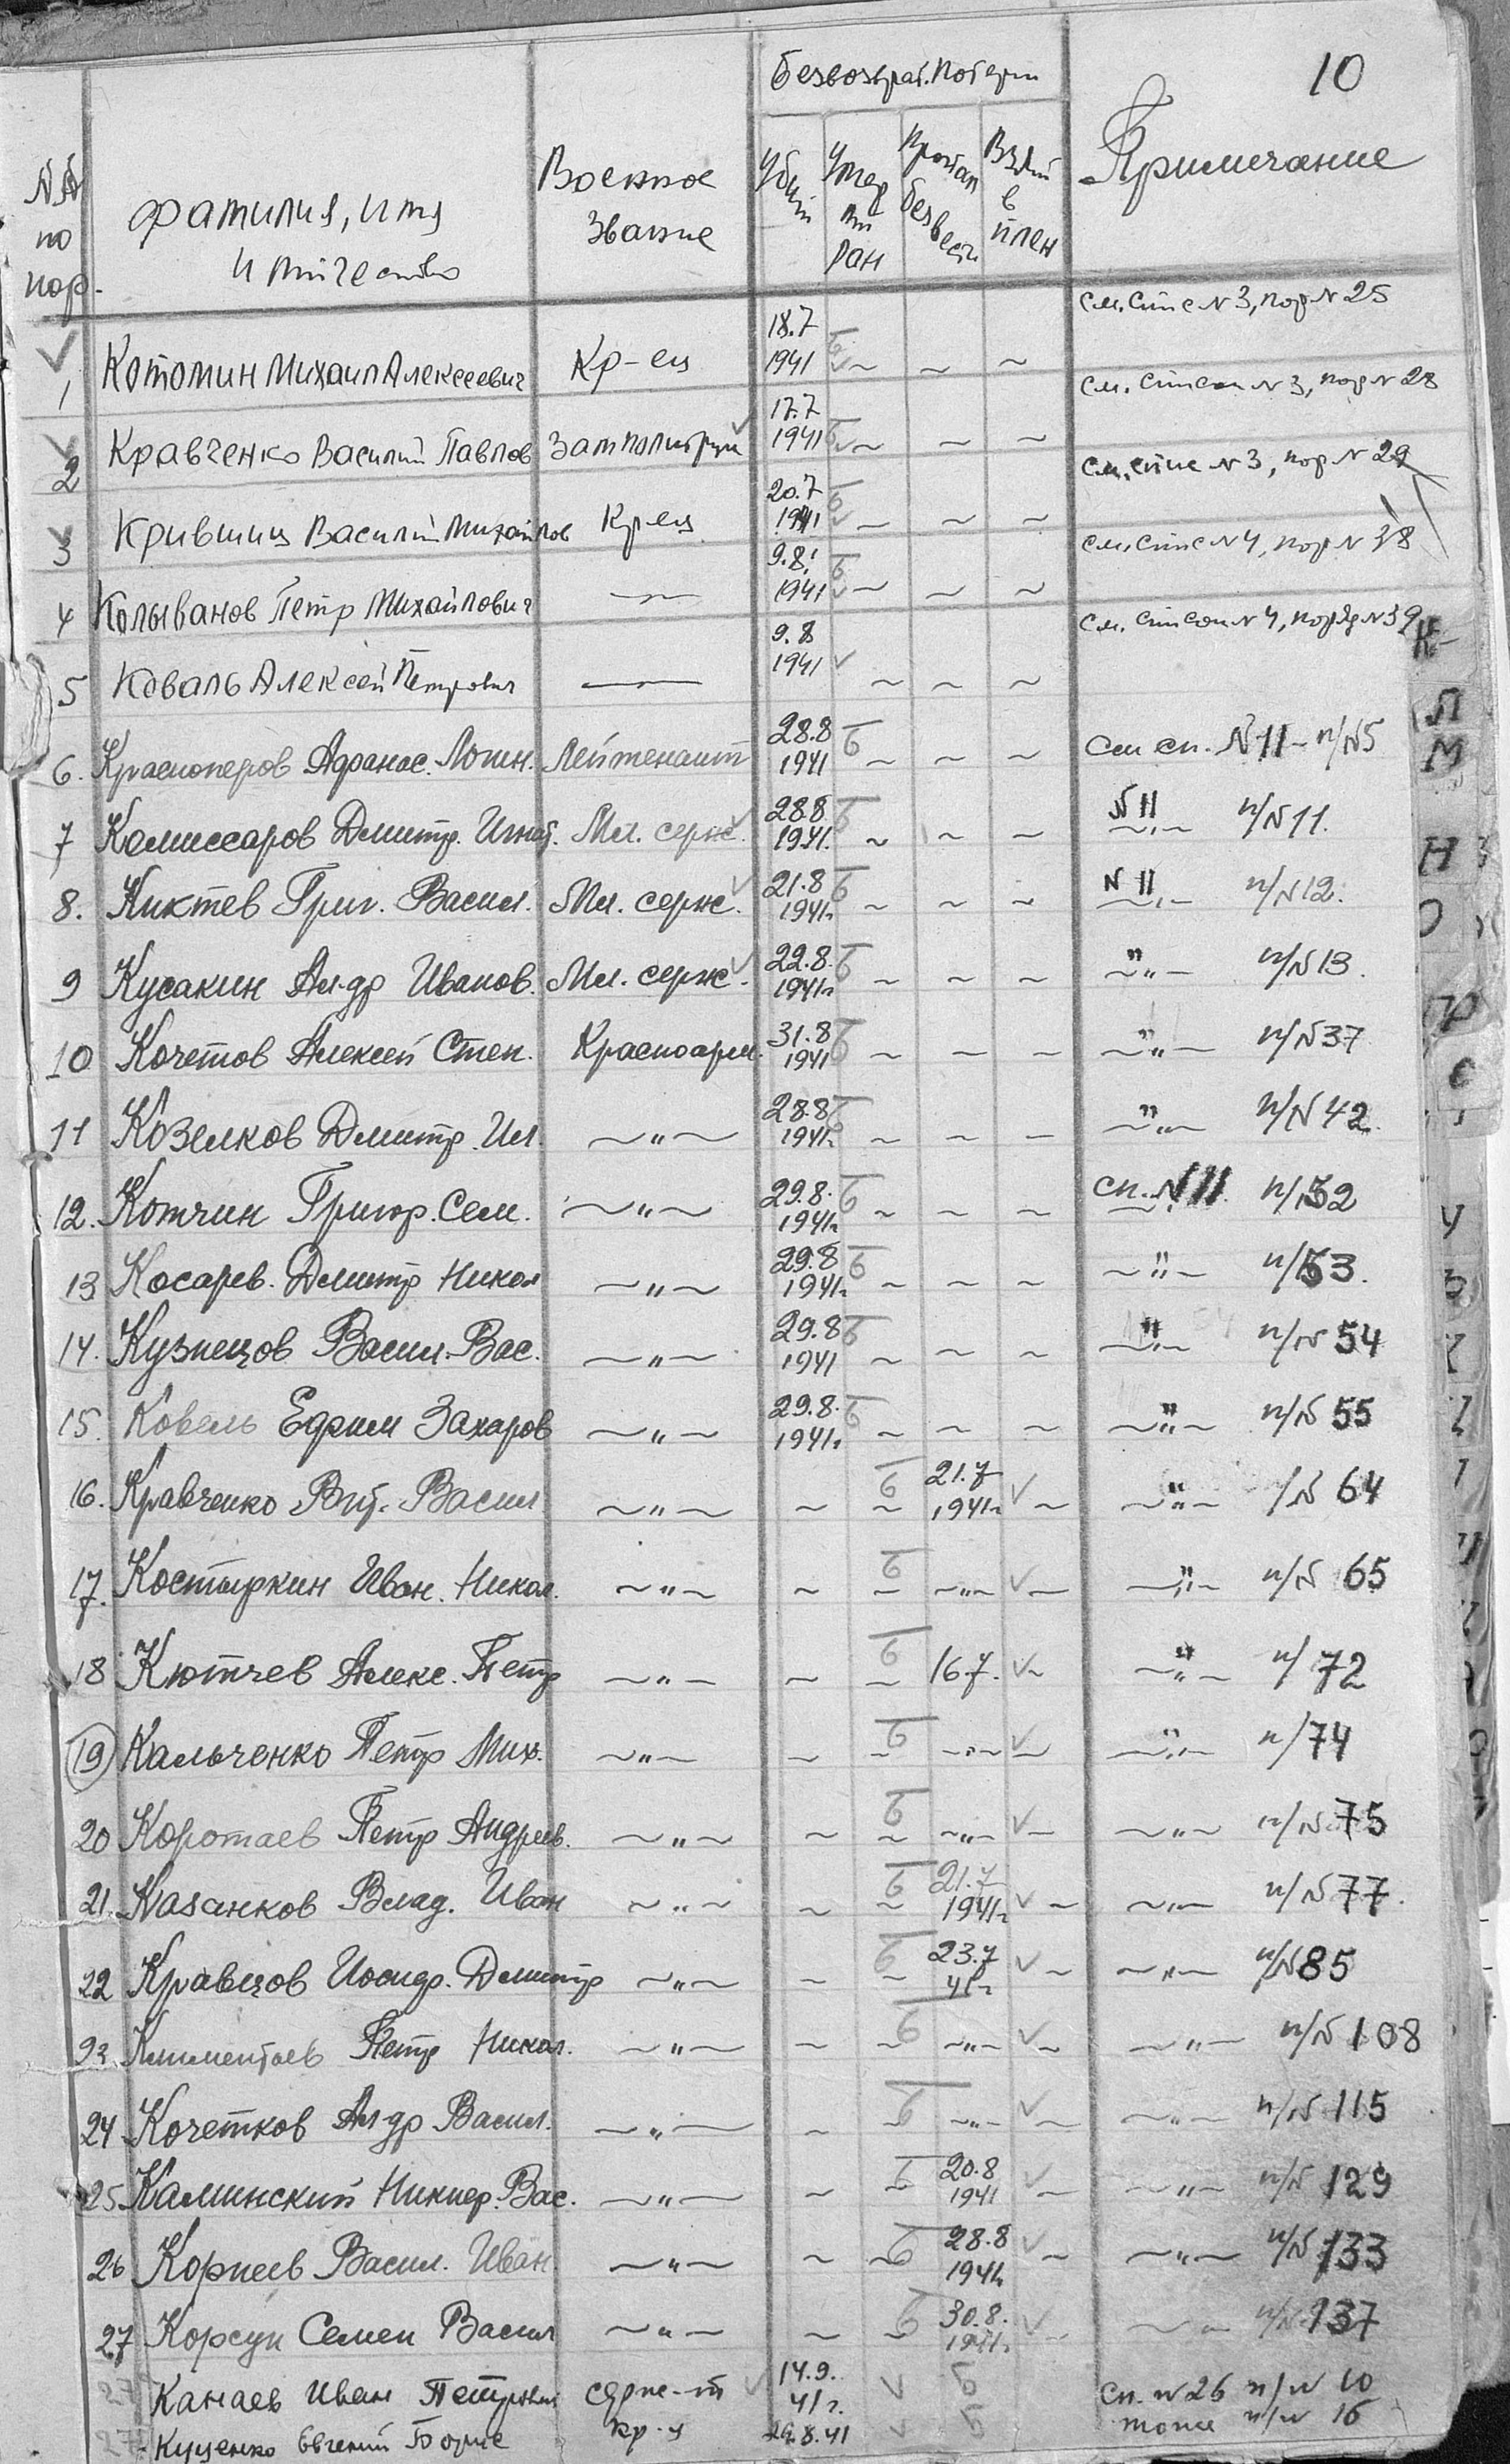 10
Безвозврат. Потери
№№ по пор. Фамилия, имя и отчество Военное звание Убит Умер от ран Пропал без вести Взят в плен Примечание
1 Котомин Михаил Алексеевич Кр-ец 18.7 1941 ~ ~ ~ см. спис N 3, пор N 25
2 Кравченко Василий Павлов Замполитрук 17.7 1941 ~ ~ ~ см. список N 3, пор N 28
3 Крившиц Василий Михайлов Кр-ец 20.7 1941 ~ ~ ~ см. спис N 3, пор N 29
4 Колыванов Петр Михайлович —— 9.8. 1941 ~ ~ ~ см. спис N 4, пор N 38
5 Коваль Алексей Петрович —— 9.8 1941 ~ ~ ~ см. список N 4, поряд N 39
6. Красноперов Афанас. Логин. Лейтенант 28.8 1941 ~ ~ ~ см сп. N 11 - п/N5
7 Комиссаров Дмитр. Игнат. Мл. серж. 28.8 1941. ~ ~ ~ N 11 ~"~ п/N 11.
8. Киктев Григ. Васил. Мл. серж. 21.8 1941г ~ ~ ~ N 11 ~"~ п/N 12.
9 Кусакин Ал-др Иванов. Мл. серж. 22.8. 1941г ~ ~ ~ ~"~ п/N 13.
10 Кочетов Алексей Степ. Красноарм. 31.8 1941 ~ ~ ~ ~"~ п/N 37
11 Козелков Дмитр. Ил. ~"~ 28.8 1941г. ~ ~ ~ ~"~ п/N 42.
12. Котчин Григор. Сем. ~"~ 29.8. 1941г ~ ~ ~ сп. N 11. п/52
13 Косарев. Дмитр Никол ~"~ 29.8 1941г. ~ ~ ~ ~"~ п/53.
14. Кузнецов Васил. Вас. ~"~ 29.8 1941 ~ ~ ~ ~"~ п/N 54
15. Ковель Ефим Захаров ~"~ 29.8. 1941г. ~ ~ ~ ~"~ п/N 55
16. Кравченко Вит. Васил ~"~ ~ ~ 21.7 1941г ~ ~"~ /N 64
17. Костыркин Иван. Никол. ~"~ ~ ~ ~"~ ~ ~"~ п/N 65
18 Кютчев Алекс. Петр ~"~ ~ ~ 16.7. ~ ~"~ п/ 72
19 Кальченко Петр Мих. ~"~ ~ ~ ~"~ ~ ~"~ п/74
20 Коротаев Петр Андреев. ~"~ ~ ~ ~"~ ~ ~"~ п/N 75
21. Казанков Влад. Иван ~"~ ~ ~ 21.7 1941г ~ ~"~ п/N 77.
22 Кравцов Исидр. Дмитр ~"~ ~ ~ 23.7 41г ~ ~"~ п/N 85
23 Климентьев Петр Никол. ~"~ ~ ~ ~"~ ~ ~"~ п/N 108
24 Кочетков Ал-др Васил. ~"~ ~ ~ ~"~ ~ ~"~ п/N 115
25 Калинский Никиер. Вас. ~"~ ~ ~ 20.8 1941 ~ ~"~ п/N 129
26 Корнеев Васил. Иван ~"~ ~ ~ 28.8 1941г ~ ~"~ п/N 133
27 Корсун Семен Васил ~"~ ~ ~ 30.8. 1941г. ~ ~"~ п/N 137
Канаев Иван Петрович серж-т 14.9. 41 г. сп. N 26 п/N 10
Куценко Евгений Борис кр-ц 29.8.41 тоже п/N 16
К
Л
М
Н
О
ПР
С
У